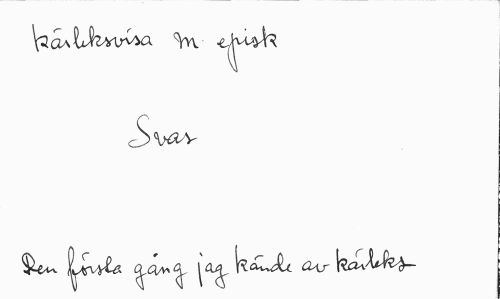 kärleksvisa m. episk
Svar
Den första gång jag kände av kärleks